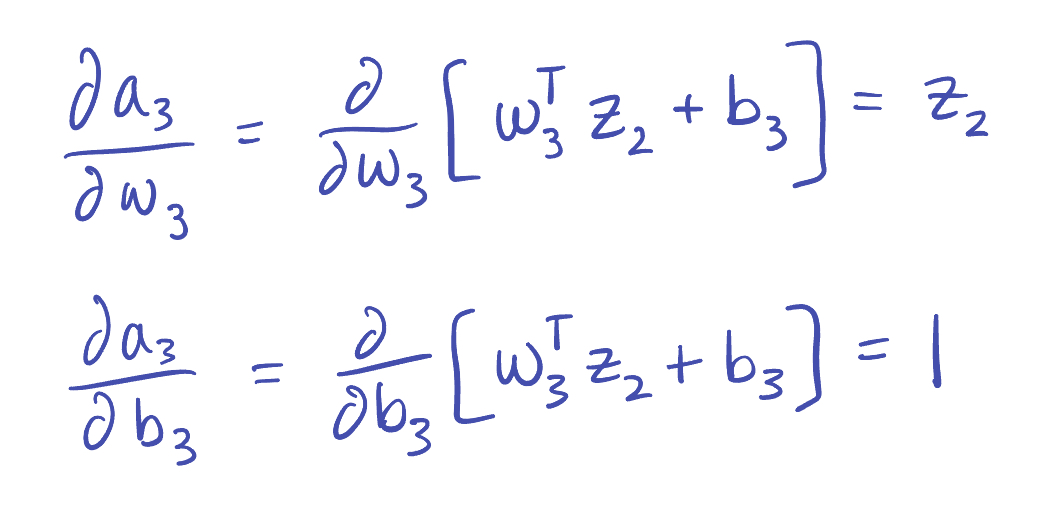 ∂a₃/∂w₃ = ∂/∂w₃ [w₃ᵀ z₂ + b₃] = z₂
∂a₃/∂b₃ = ∂/∂b₃ [w₃ᵀ z₂ + b₃] = 1